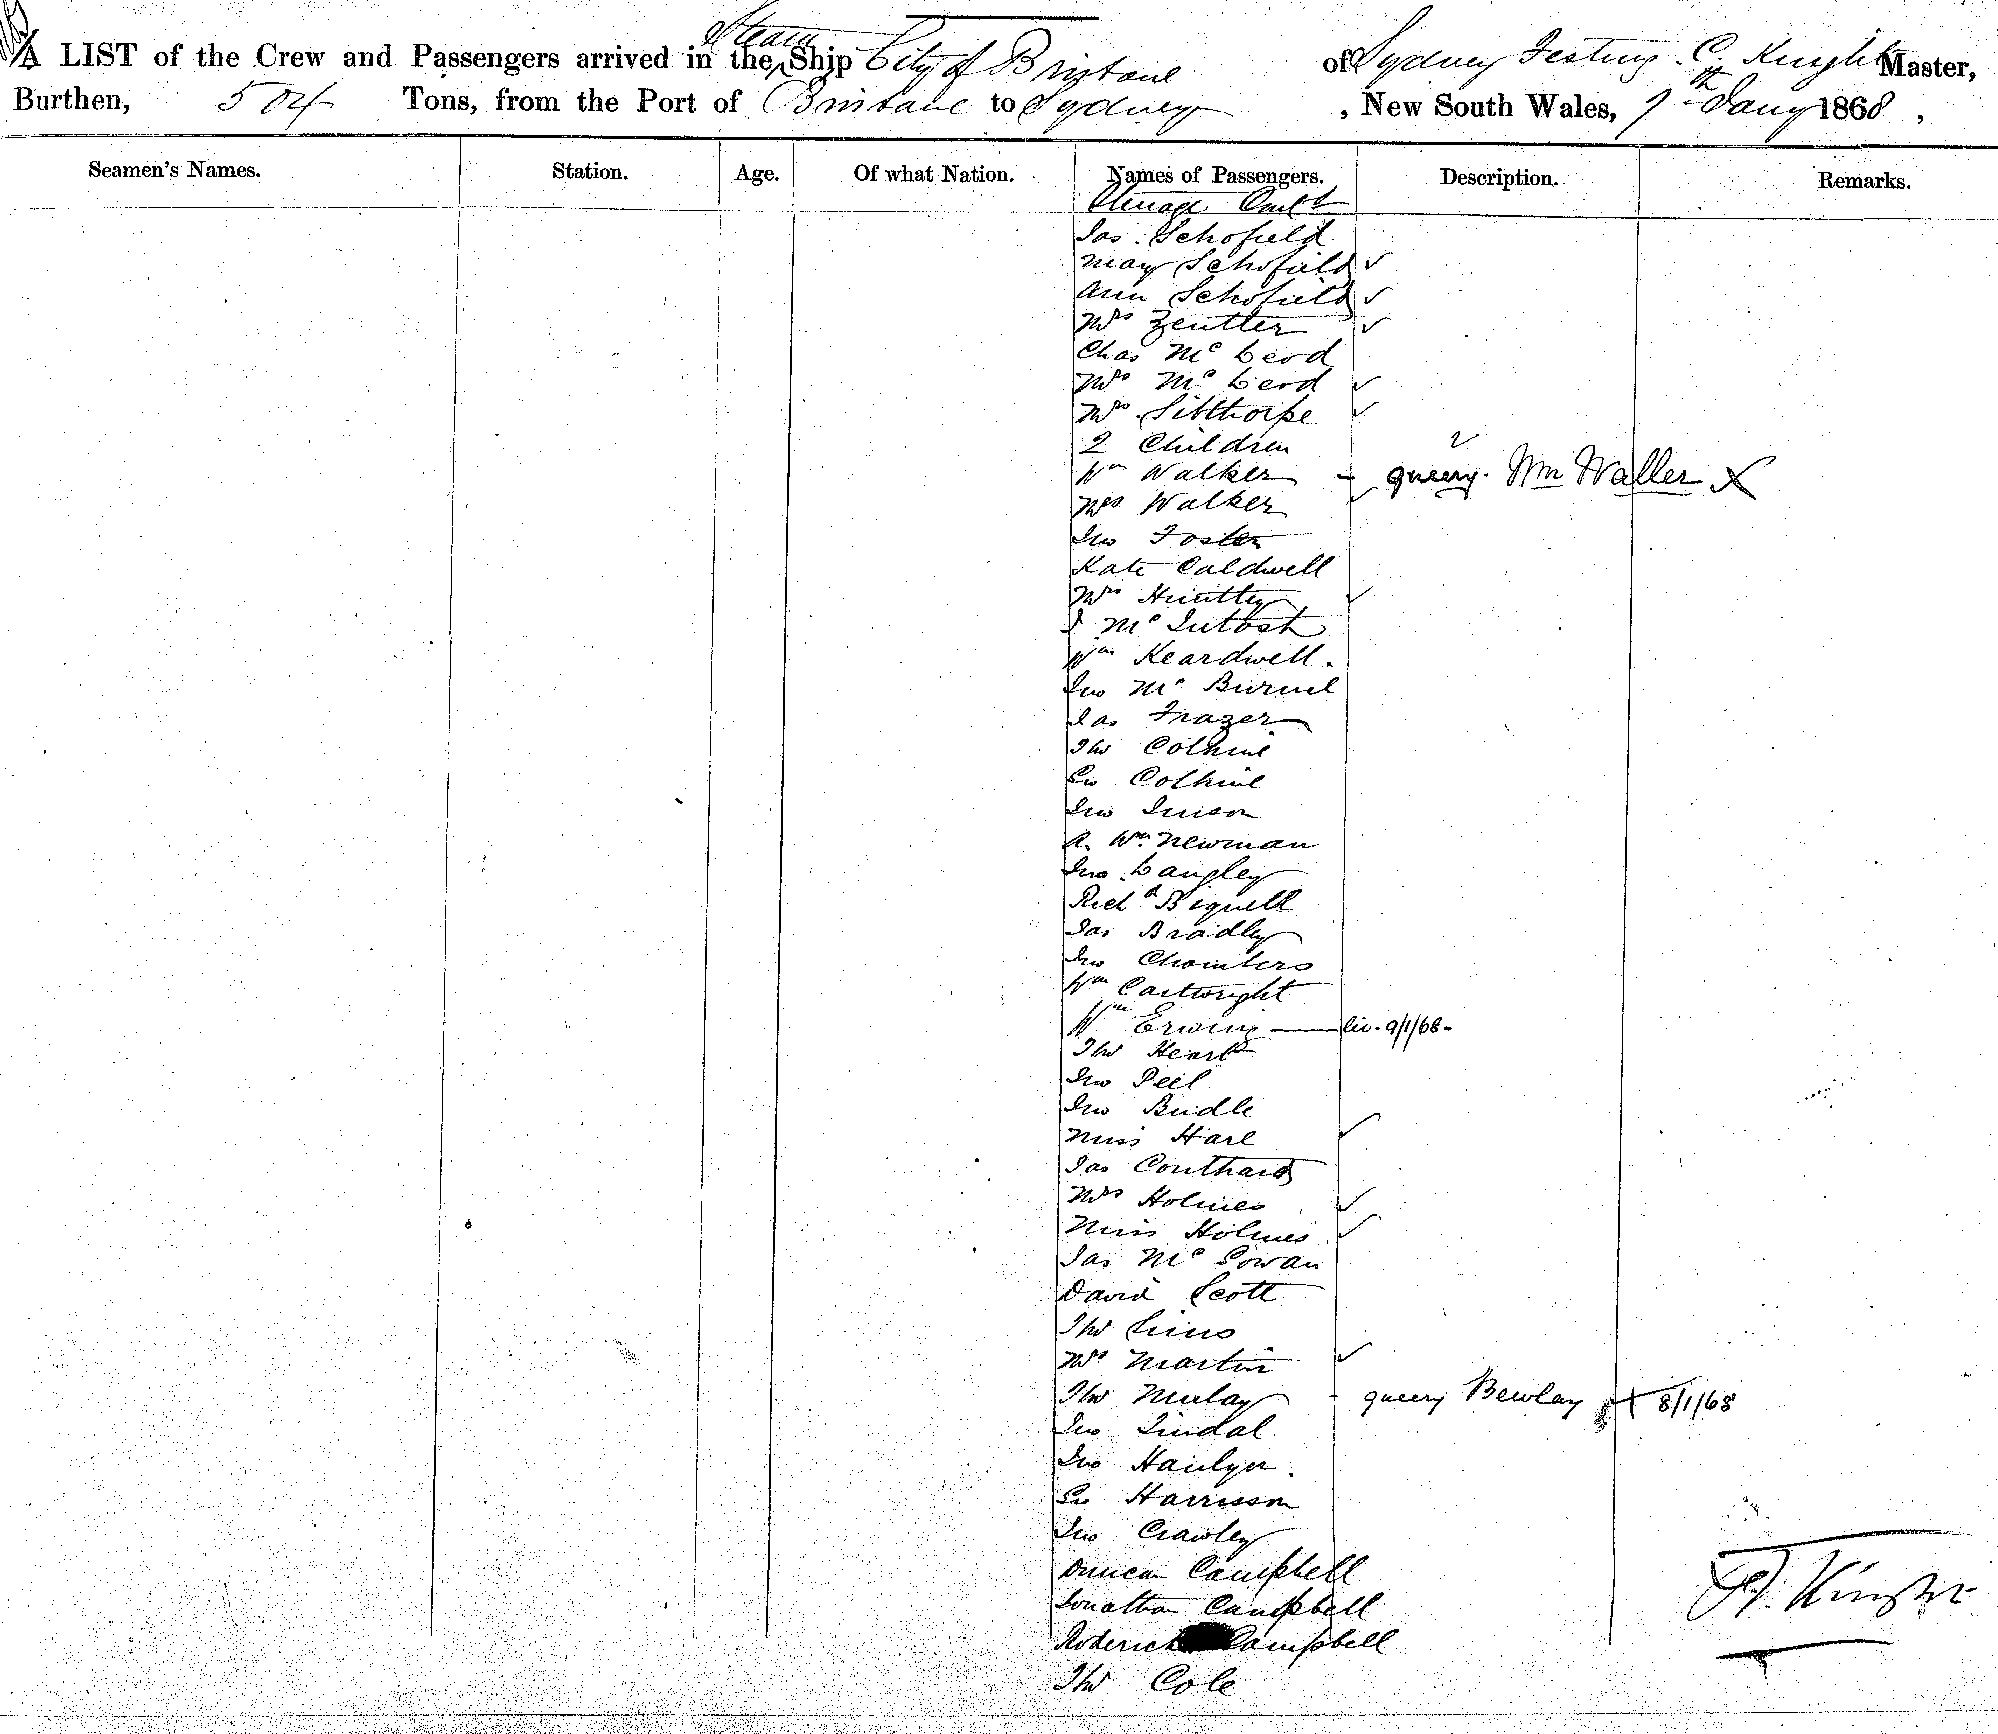 A LIST of the Crew and Passengers arrived in the Steam Ship City of Brisbane of Sydney Testing. C. Knight Master,
Burthen, 504 Tons, from the Port of Brisbane to Sydney, New South Wales, 7th Jany 1868,
Seamen's Names. Station. Age. Of what Nation. Names of Passengers. Description. Remarks.
Steerage Contd
Jas. Schofield
Mary Schofield ✓
Ann Schofield ✓
Mrs Zeutter ✓
Chas Mc Leod
Mrs Mc Leod ✓
Mrs Sibthorpe ✓
2 Children
Wm Walker - query. Wm Waller X
Mrs Walker ✓
Jno Foster
Kate Caldwell
Mrs Huntley ✓
J Mc Intosh
Wm Keardwell.
Jno Mc
Jas Frazer
Tho
Geo
Jno
A. Wm Newman
Jno Langley
Richd Bignell
Jas Bradley
Jno Chambers
Wm Cartwright
Wm Erwing 9/1/68
Tho
Jno Peel
Jno Budle
Miss Hare ✓
Jas Coulthard
Mrs Holmes ✓
Miss Holmes ✓
Jas Mc Gowan
David Scott
Tho
Mrs Martin ✓
Tho Mulay - query Bewlay + 8/1/68
Jno Tindal
Jno
Geo Harrison
Jno Crawley
Duncan Campbell
Jonathan Campbell
Roderick Campbell
Tho Cole